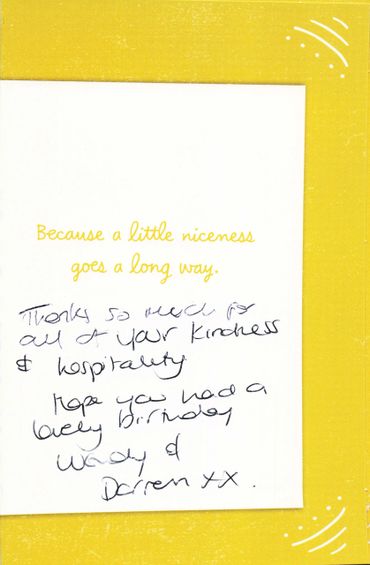 Because a little niceness
goes a long way.
Thanks so much for
all of your kindness
& hospitality
Hope you had a
lovely birthday
Wendy &
Darren xx.